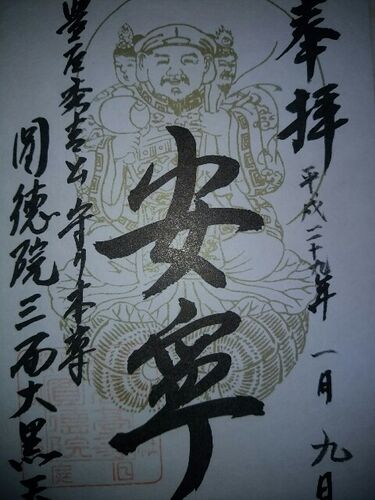 奉拝
平成二十九年 一月 九日
安寧
豊臣秀吉公 守り本尊
圓德院三面大黒天